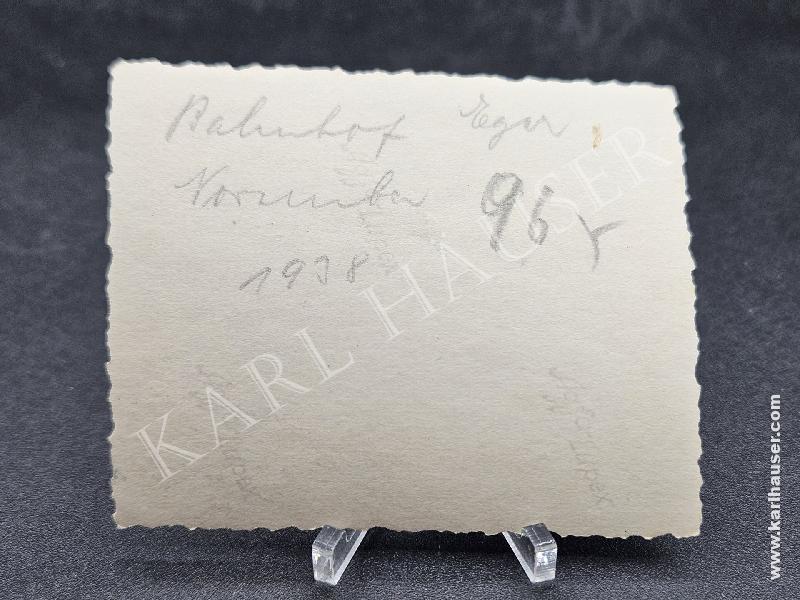 Bahnhof Eger
November 96
1938
KARL HAUSER
www.karlhauser.com